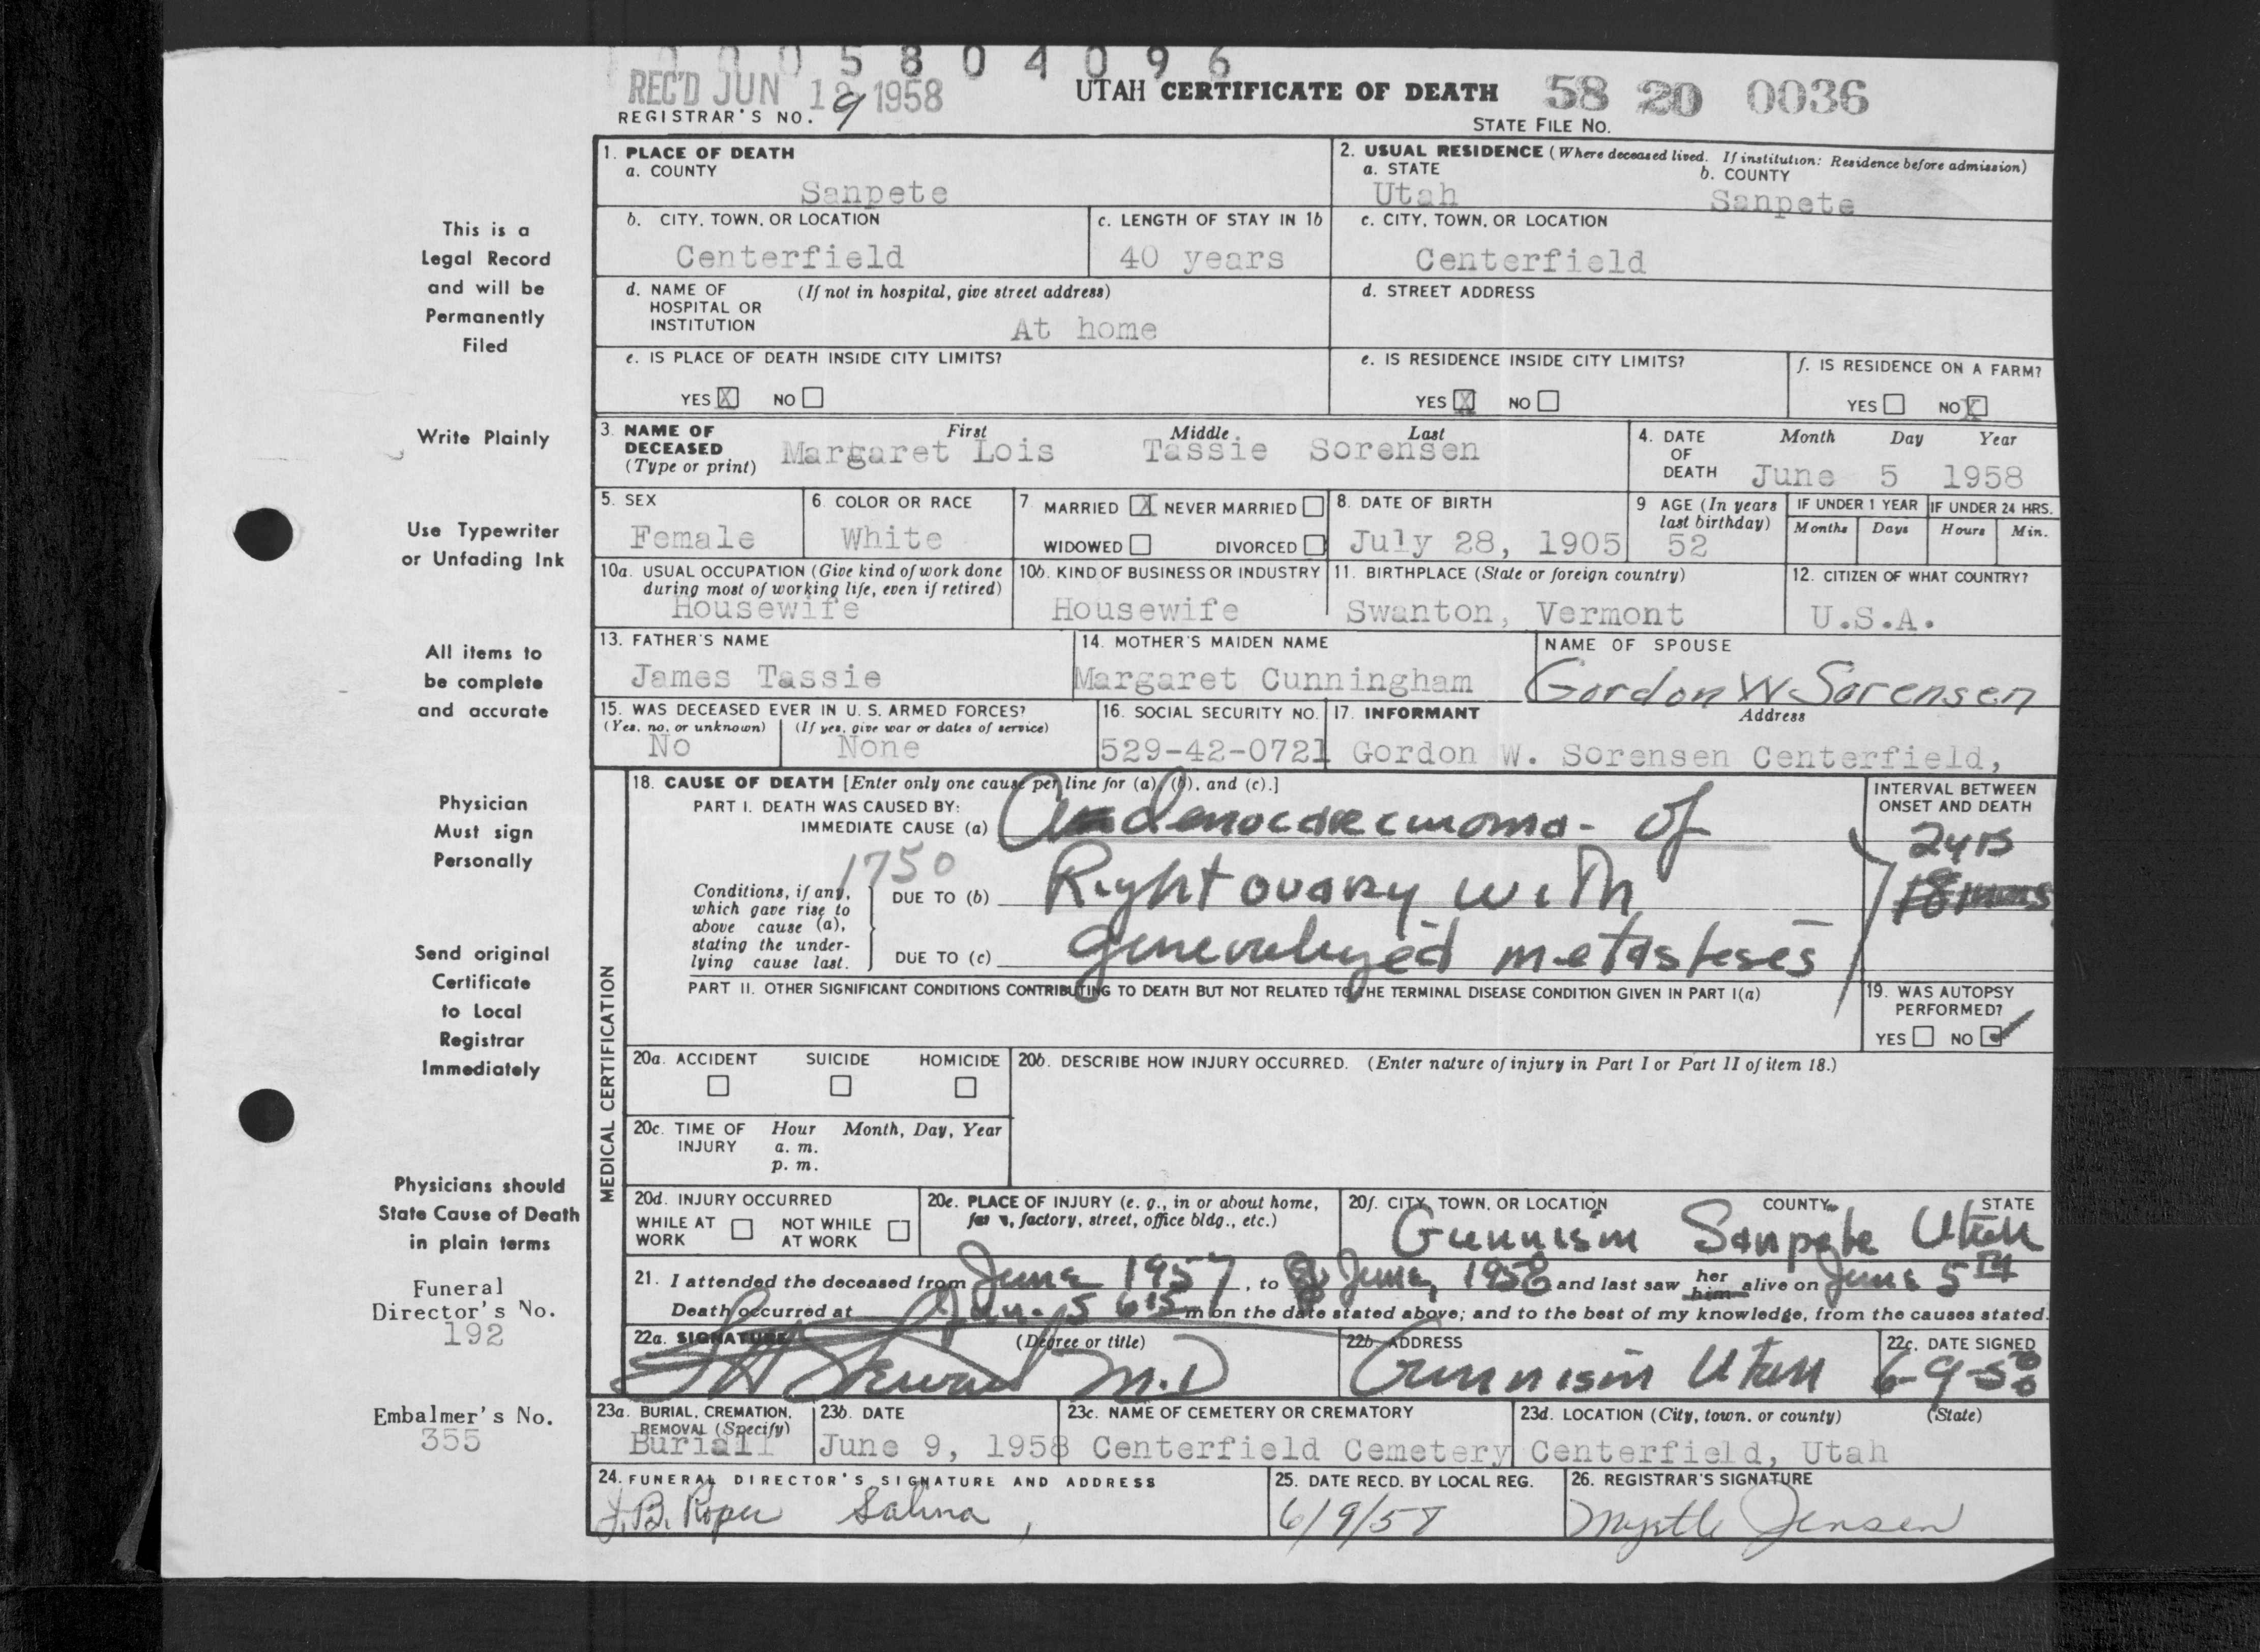 0005804096
REC'D JUN 12 1958
UTAH CERTIFICATE OF DEATH 58 20 0036
REGISTRAR'S NO. 9
STATE FILE NO.
This is a
Legal Record
and will be
Permanently
Filed
Write Plainly
Use Typewriter
or Unfading Ink
All items to
be complete
and accurate
Physician
Must sign
Personally
Send original
Certificate
to Local
Registrar
Immediately
Physicians should
State Cause of Death
in plain terms
Funeral
Director's No.
192
Embalmer's No.
355
1. PLACE OF DEATH
a. COUNTY
Sanpete
2. USUAL RESIDENCE (Where deceased lived. If institution: Residence before admission)
a. STATE b. COUNTY
Utah Sanpete
b. CITY, TOWN, OR LOCATION
Centerfield
c. LENGTH OF STAY IN 1b
40 years
c. CITY, TOWN, OR LOCATION
Centerfield
d. NAME OF (If not in hospital, give street address)
HOSPITAL OR
INSTITUTION
At home
d. STREET ADDRESS
e. IS PLACE OF DEATH INSIDE CITY LIMITS?
YES X NO
e. IS RESIDENCE INSIDE CITY LIMITS?
YES X NO
f. IS RESIDENCE ON A FARM?
YES NO X
3. NAME OF First Middle Last
DECEASED
(Type or print)
Margaret Lois Tassie Sorensen
4. DATE Month Day Year
OF
DEATH June 5 1958
5. SEX
Female
6 COLOR OR RACE
White
7. MARRIED X NEVER MARRIED
WIDOWED DIVORCED
8. DATE OF BIRTH
July 28, 1905
9 AGE (In years
last birthday)
52
IF UNDER 1 YEAR
Months Days
IF UNDER 24 HRS.
Hours Min.
10a. USUAL OCCUPATION (Give kind of work done
during most of working life, even if retired)
Housewife
10b. KIND OF BUSINESS OR INDUSTRY
Housewife
11. BIRTHPLACE (State or foreign country)
Swanton, Vermont
12. CITIZEN OF WHAT COUNTRY?
U.S.A.
13. FATHER'S NAME
James Tassie
14. MOTHER'S MAIDEN NAME
Margaret Cunningham
NAME OF SPOUSE
Gordon W Sorensen
15. WAS DECEASED EVER IN U. S. ARMED FORCES?
(Yes, no, or unknown) (If yes, give war or dates of service)
No None
16. SOCIAL SECURITY NO.
529-42-0721
17. INFORMANT Address
Gordon W. Sorensen Centerfield,
MEDICAL CERTIFICATION
18. CAUSE OF DEATH [Enter only one cause per line for (a), (b), and (c).]
PART I. DEATH WAS CAUSED BY:
IMMEDIATE CAUSE (a) Adenocarecinoma of
1750
Conditions, if any,
which gave rise to
above cause (a),
stating the under-
lying cause last.
DUE TO (b) Right ovary with
DUE TO (c) generalized metasteses
INTERVAL BETWEEN
ONSET AND DEATH
2 yrs
PART II. OTHER SIGNIFICANT CONDITIONS CONTRIBUTING TO DEATH BUT NOT RELATED TO THE TERMINAL DISEASE CONDITION GIVEN IN PART I(a)
19. WAS AUTOPSY
PERFORMED?
YES NO ✓
20a. ACCIDENT SUICIDE HOMICIDE
20b. DESCRIBE HOW INJURY OCCURRED. (Enter nature of injury in Part I or Part II of item 18.)
20c. TIME OF Hour Month, Day, Year
INJURY a. m.
p. m.
20d. INJURY OCCURRED
WHILE AT WORK NOT WHILE AT WORK
20e. PLACE OF INJURY (e. g., in or about home,
farm, factory, street, office bldg., etc.)
20f. CITY, TOWN, OR LOCATION COUNTY STATE
Gunnison Sanpete Utah
21. I attended the deceased from June 1957, to June, 1958 and last saw her him alive on June 5th
Death occurred at Jun. 5 615 m on the date stated above; and to the best of my knowledge, from the causes stated.
22a. SIGNATURE (Degree or title)
M.D
22b. ADDRESS
Gunnison Utah
22c. DATE SIGNED
6-9-58
23a. BURIAL, CREMATION,
REMOVAL (Specify)
Buriall
23b. DATE
June 9, 1958
23c. NAME OF CEMETERY OR CREMATORY
Centerfield Cemetery
23d. LOCATION (City, town, or county) (State)
Centerfield, Utah
24. FUNERAL DIRECTOR'S SIGNATURE AND ADDRESS
J.B. Roper Salina,
25. DATE RECD. BY LOCAL REG.
6/9/58
26. REGISTRAR'S SIGNATURE
Myrtle Jensen